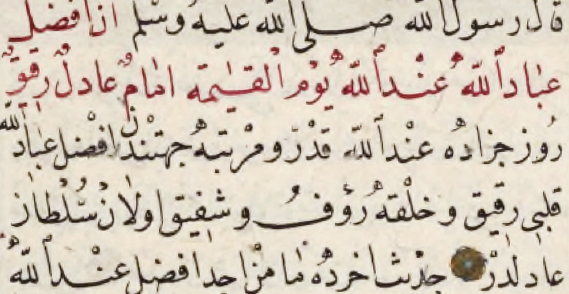 قال رسول الله صلى الله عليه وسلم ان افضل
عباد الله عند الله يوم القيمة امام عادل رقيق
روز جزاده عند الله قدر و مرتبه جهتندن افضل عباد الله
قلبى رقيق و خلقه رؤف و شفيق اولان سلطان
عادلدر حديث اخرده ما من احد افضل عند الله